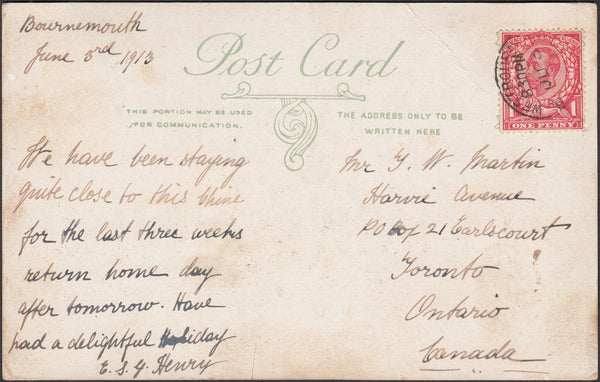 Bournemouth
June 3rd 1913
Post Card
THIS PORTION MAY BE USED
/FOR COMMUNICATION.
THE ADDRESS ONLY TO BE
WRITTEN HERE
We have been staying
quite close to this Chine
for the last three weeks
return home day
after tomorrow. Have
had a delightful Holiday
E. S. G. Henry
Mr G. W. Martin
Harvie Avenue
PO Box 21 Earlscourt
Toronto
Ontario
Canada
ONE PENNY
1